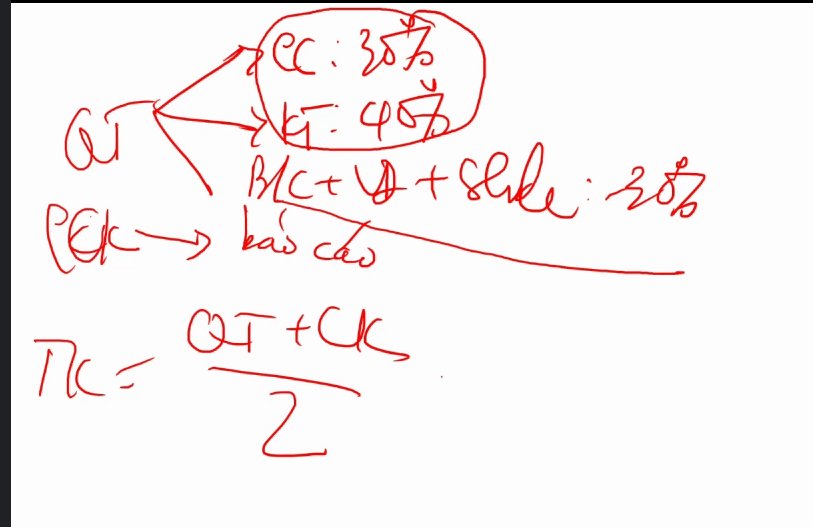 CC: 30%
QT KT: 40%
B/C + VĐ + Slide: 30%
CK → báo cáo
TK = (QT + CK) / 2